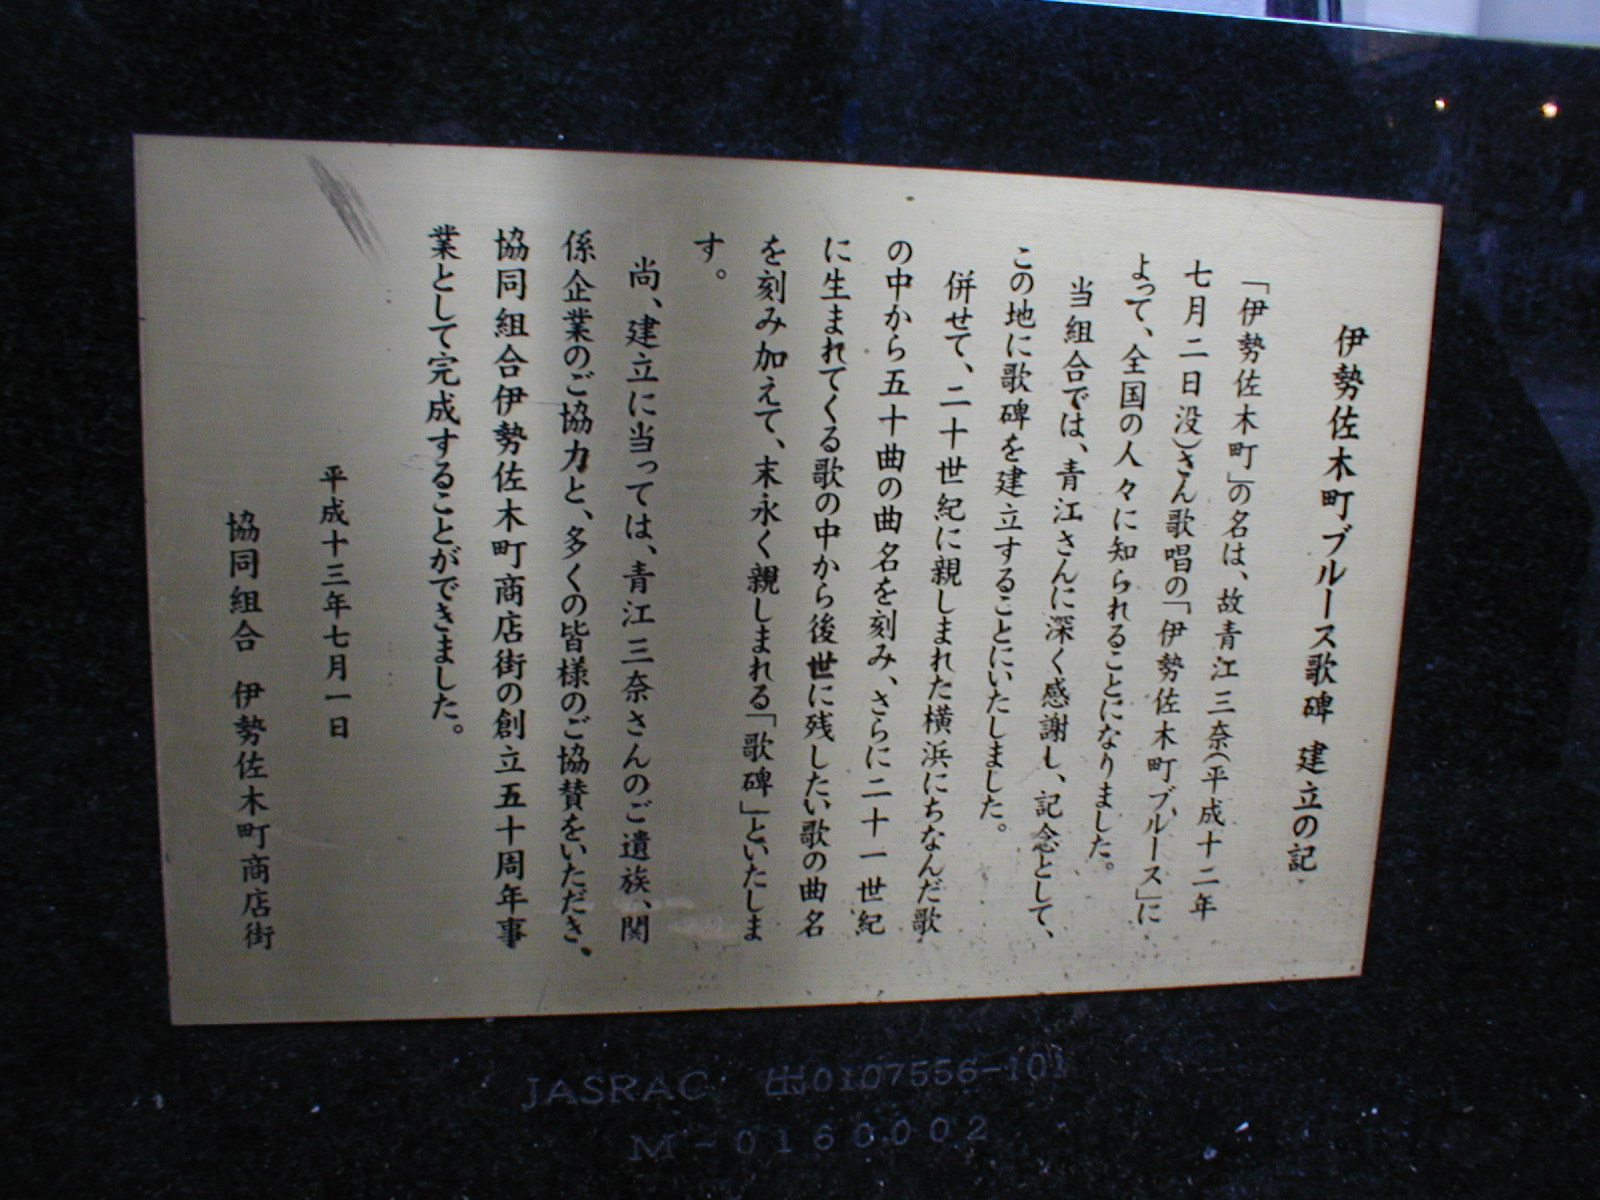 伊勢佐木町ブルース歌碑 建立の記
「伊勢佐木町」の名は、故青江三奈(平成十二年
七月二日没)さん歌唱の「伊勢佐木町ブルース」に
よって、全国の人々に知られることになりました。
当組合では、青江さんに深く感謝し、記念として、
この地に歌碑を建立することにいたしました。
併せて、二十世紀に親しまれた横浜にちなんだ歌
の中から五十曲の曲名を刻み、さらに二十一世紀
に生まれてくる歌の中から後世に残したい歌の曲名
を刻み加えて、末永く親しまれる「歌碑」といたしま
す。
尚、建立に当っては、青江三奈さんのご遺族、関
係企業のご協力と、多くの皆様のご協賛をいただき、
協同組合伊勢佐木町商店街の創立五十周年事
業として完成することができました。
平成十三年七月一日
協同組合 伊勢佐木町商店街
JASRAC 出0107556-101
M-0160002